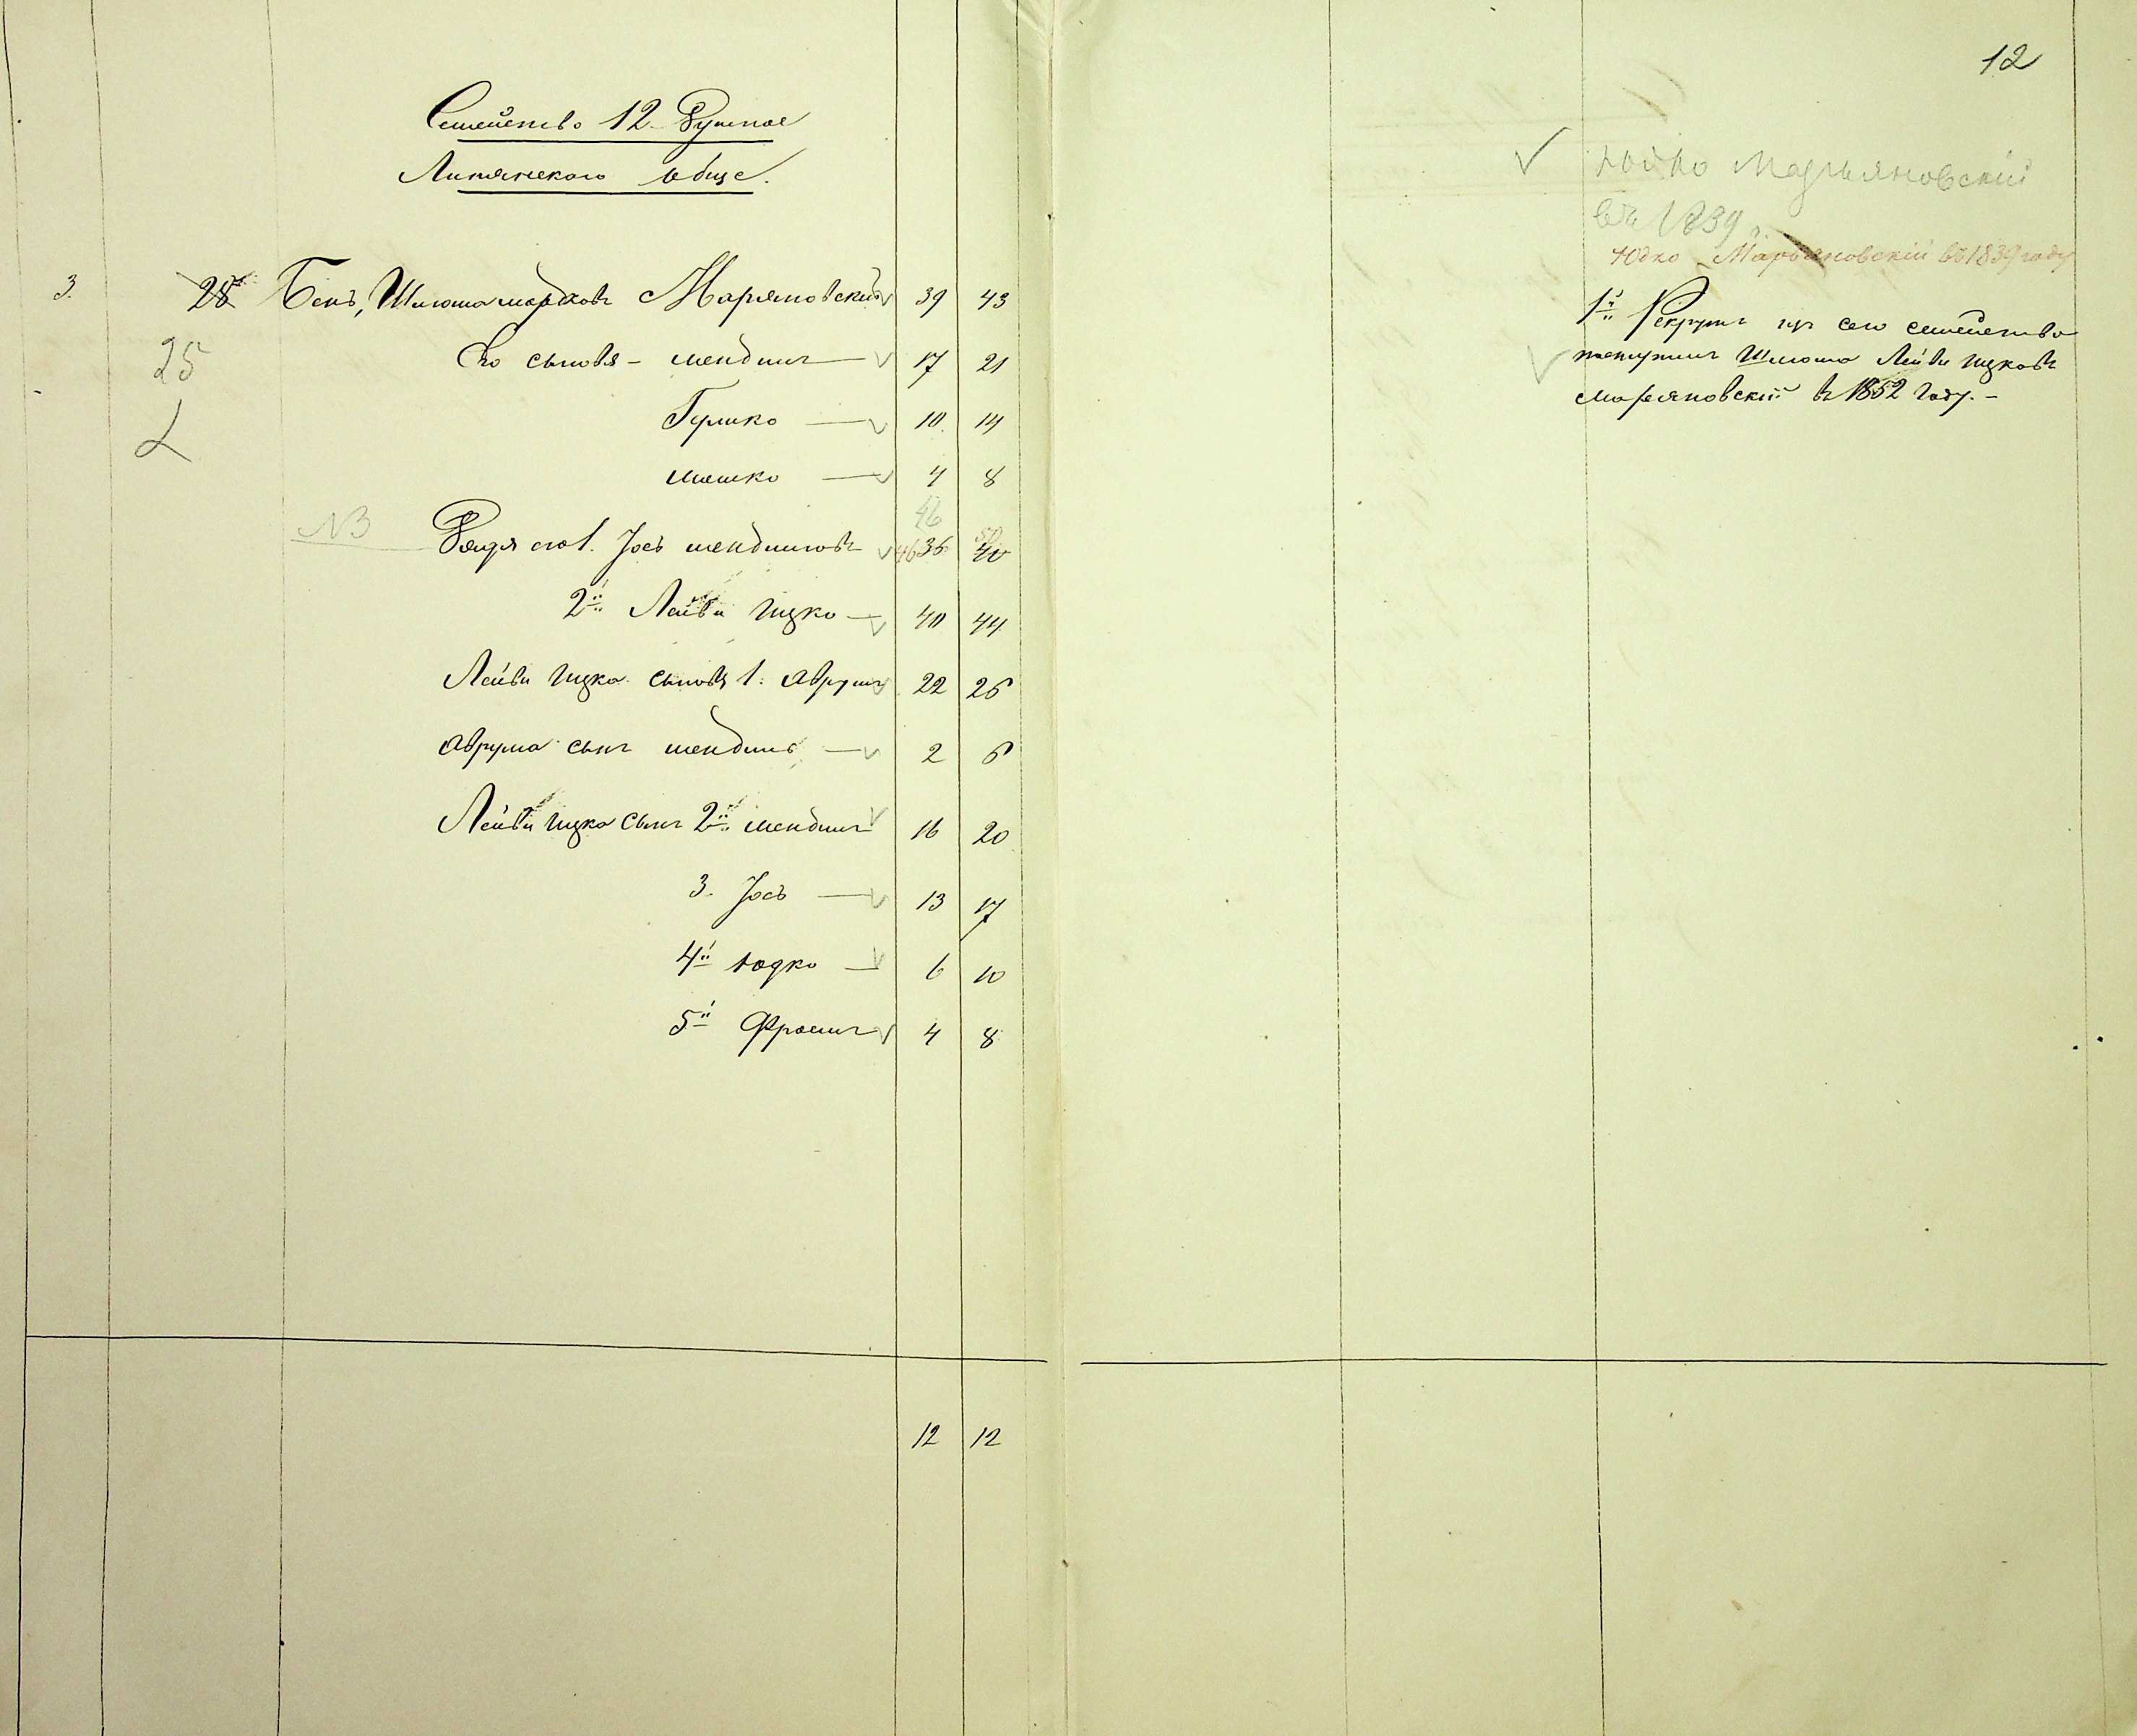 Семейство 12 Душное
Литинского обще.
3. 28 Бенъ, Шлюма мордковъ Марьяновский 39 43
25
Его сыновья – мендиль 17 21
Гершко 10 14
мошко 4 8
46
N3 Дядя его 1. Іось мендилювъ 46 36 50 40
2й Лейби Ицко 40 44
Лейби Ицка сыновья 1. Аврумъ 22 26
Аврума сынъ мендиль 2 6
Лейби Ицка сынъ 2й мендиль 16 20
3. Іось 13 17
4й Юдко 6 10
5й Фроимъ 4 8
12 12
12
Юдко Марьяновский
въ 1839
Юдко Марьяновский въ 1839 году
1й Рекрутъ из сего семейства
поступилъ Шлюма Лейби Ицковъ
Марьяновский въ 1852 году. –